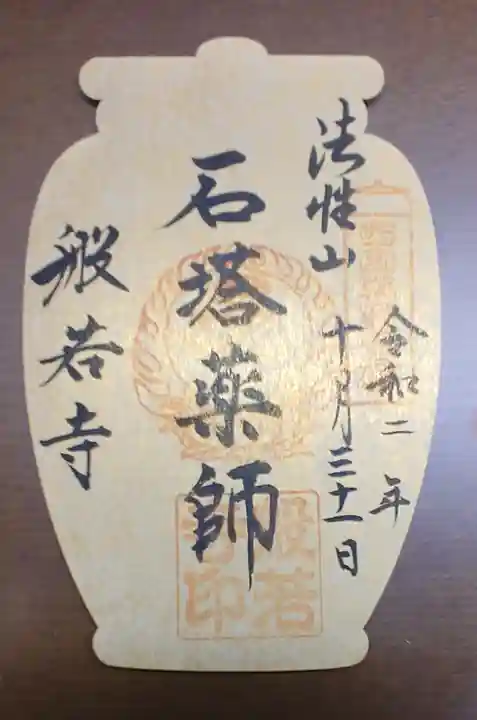 令和二年
十月三十一日
法性山
石塔薬師
般若寺
般若寺印